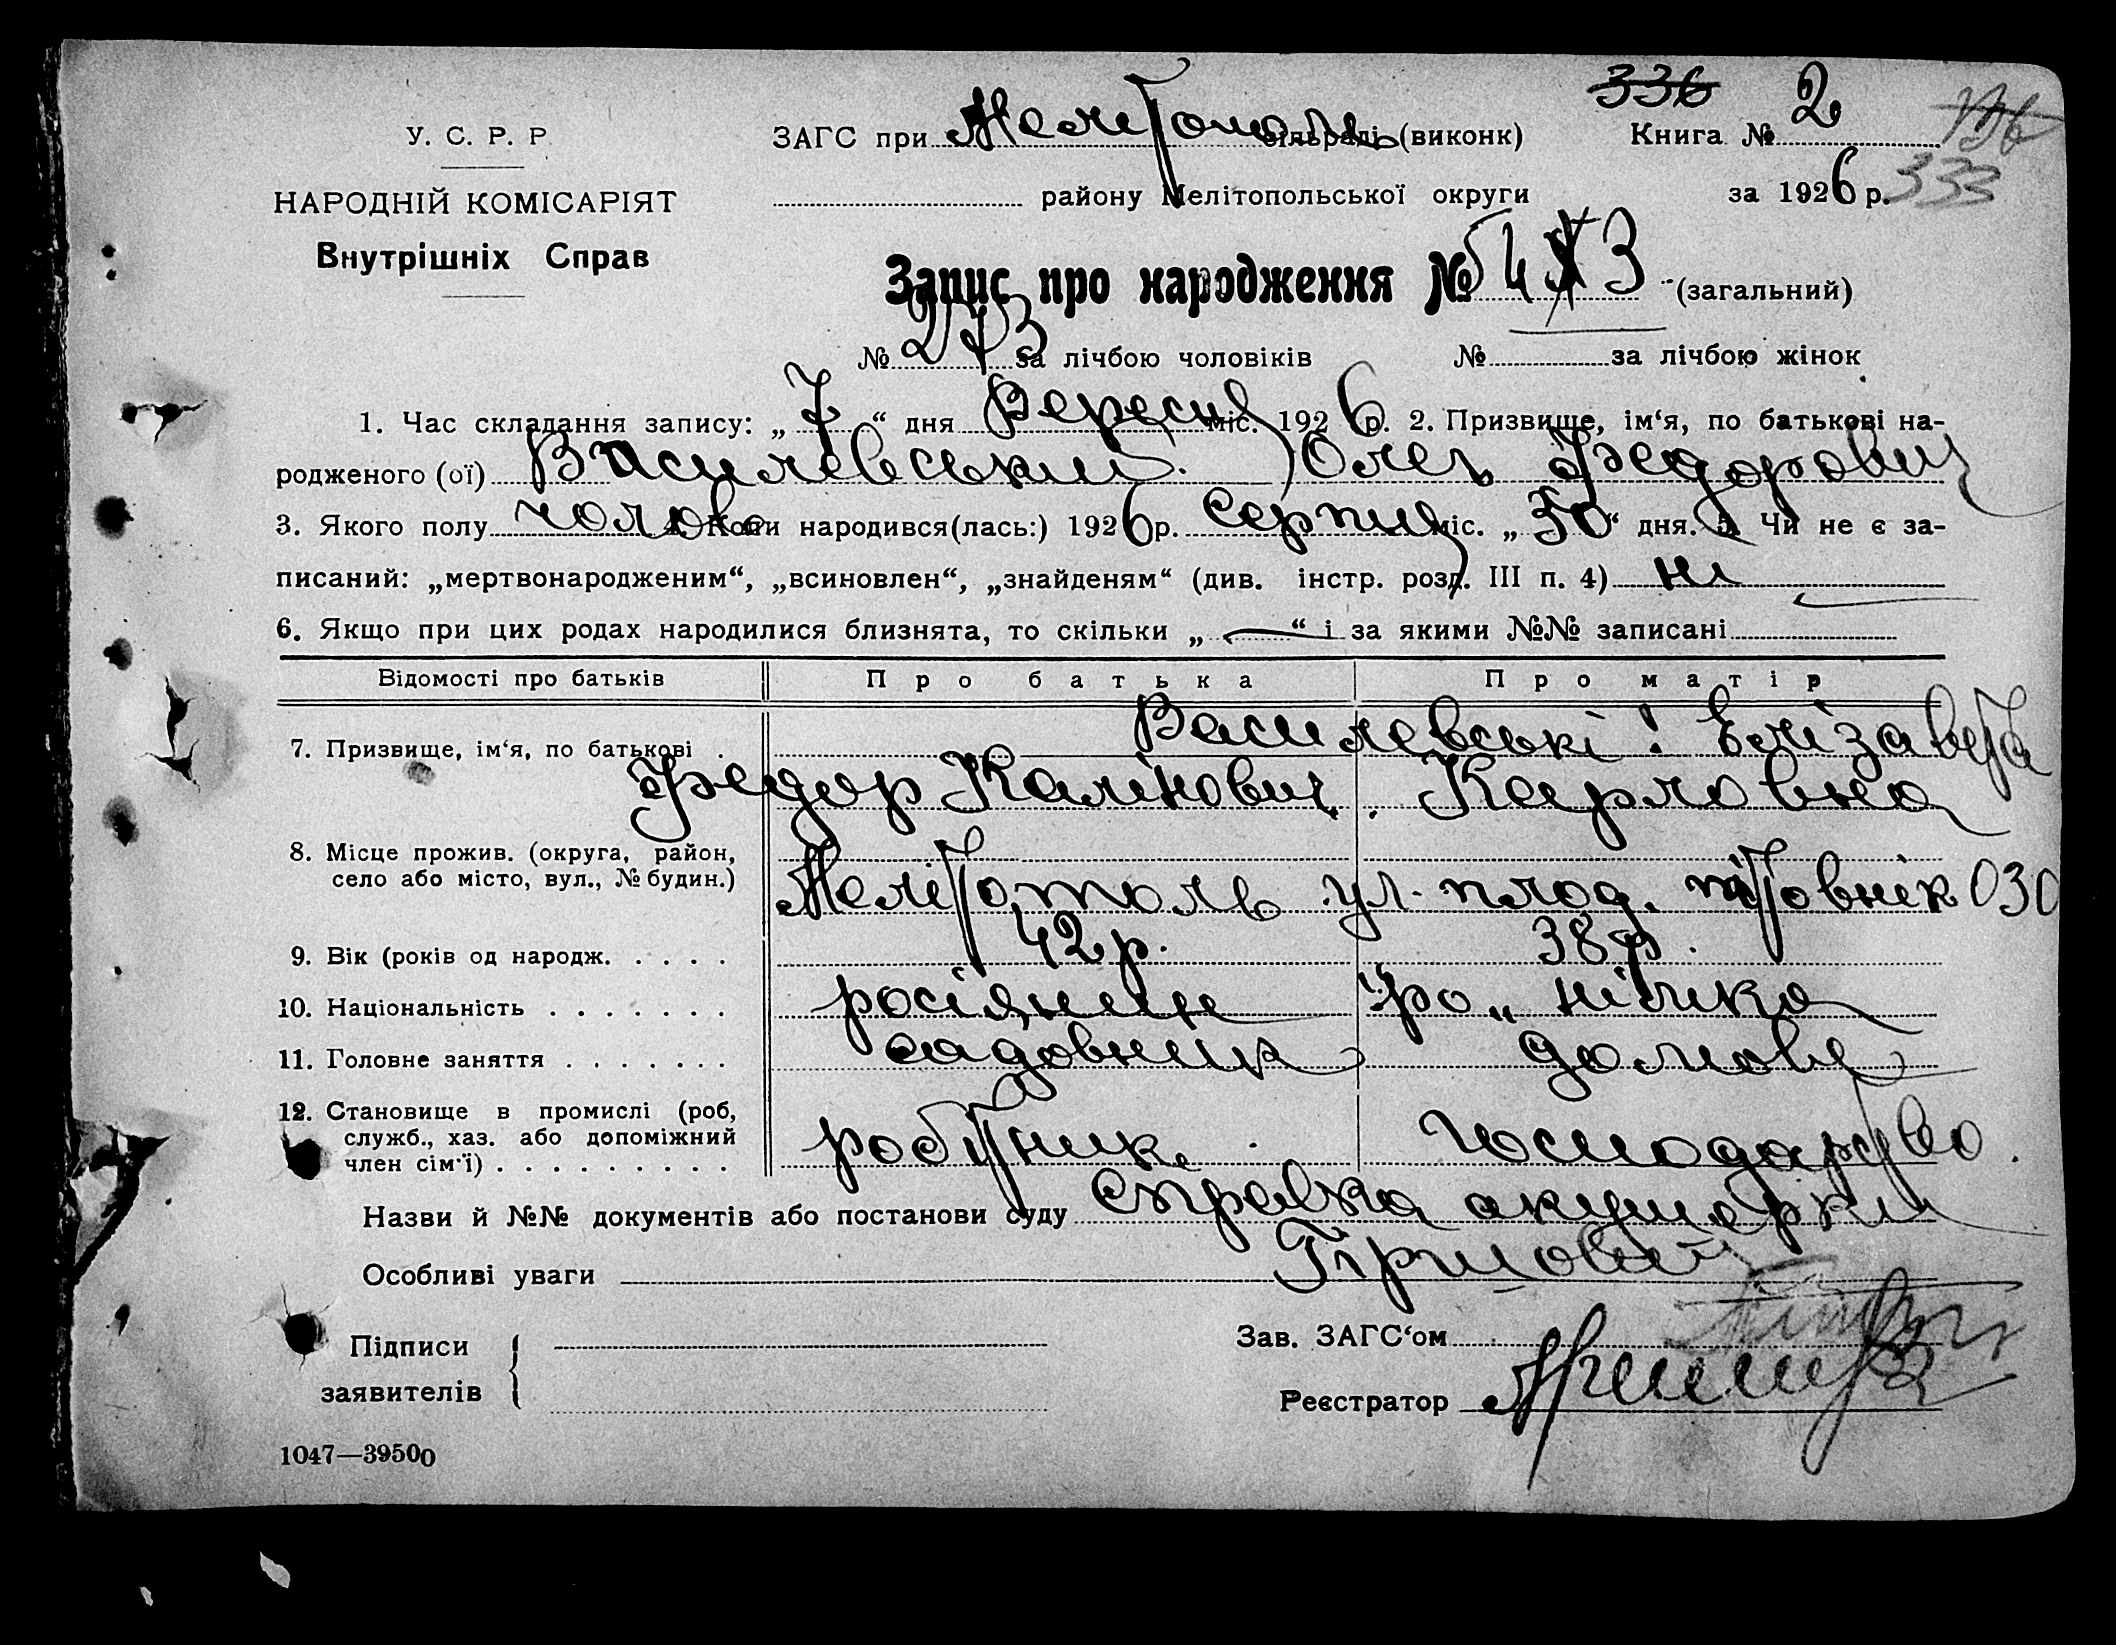 336 2
У. С. Р. Р. ЗАГС при Мелітополь сільраді (виконк) Книга № 2
333
НАРОДНІЙ КОМІСАРІЯТ району Мелітопольської округи за 1926 р.
Внутрішніх Справ
Запис про народження № (загальний)
№ 273 за лічбою чоловіків № за лічбою жінок
1. Час складання запису: „7“ дня Вересня міс. 1926 р. 2. Призвище, ім‘я, по батькові на-
родженого (ої) Василевський Олег Федорович
3. Якого полу чолов 4. Коли народився(лась:) 1926 р. Серпня міс. „30“ дня. 5. Чи не є за-
писаний: „мертвонародженим“, „всиновлен“, „знайденям“ (див. інстр. розд. III п. 4) ні
6. Якщо при цих родах народилися близнята, то скільки „—“ і за якими №№ записані
Відомості про батьків Про батька Про матір
Василевські: Елізавета
7. Призвище, ім‘я, по батькові .
Федор Калінович. Карловна
8. Місце прожив. (округа, район,
село або місто, вул., № будин.) Мелітополь ул. плод. пітовнік 030
9. Вік (років од народж. . . . . 42 р. 38 р.
10. Національність . . . . . . . росіянин німка
11. Головне заняття . . . . . . . садовник домове
12. Становище в промислі (роб,
служб., хаз. або допоміжний робітник. господарство
член сім‘ї) . . . . . . . . .
Назви й №№ документів або постанови суду Справка акушорки
Особливі уваги
Підписи Зав. ЗАГС‘ом
заявителів Реєстратор
1047—39500